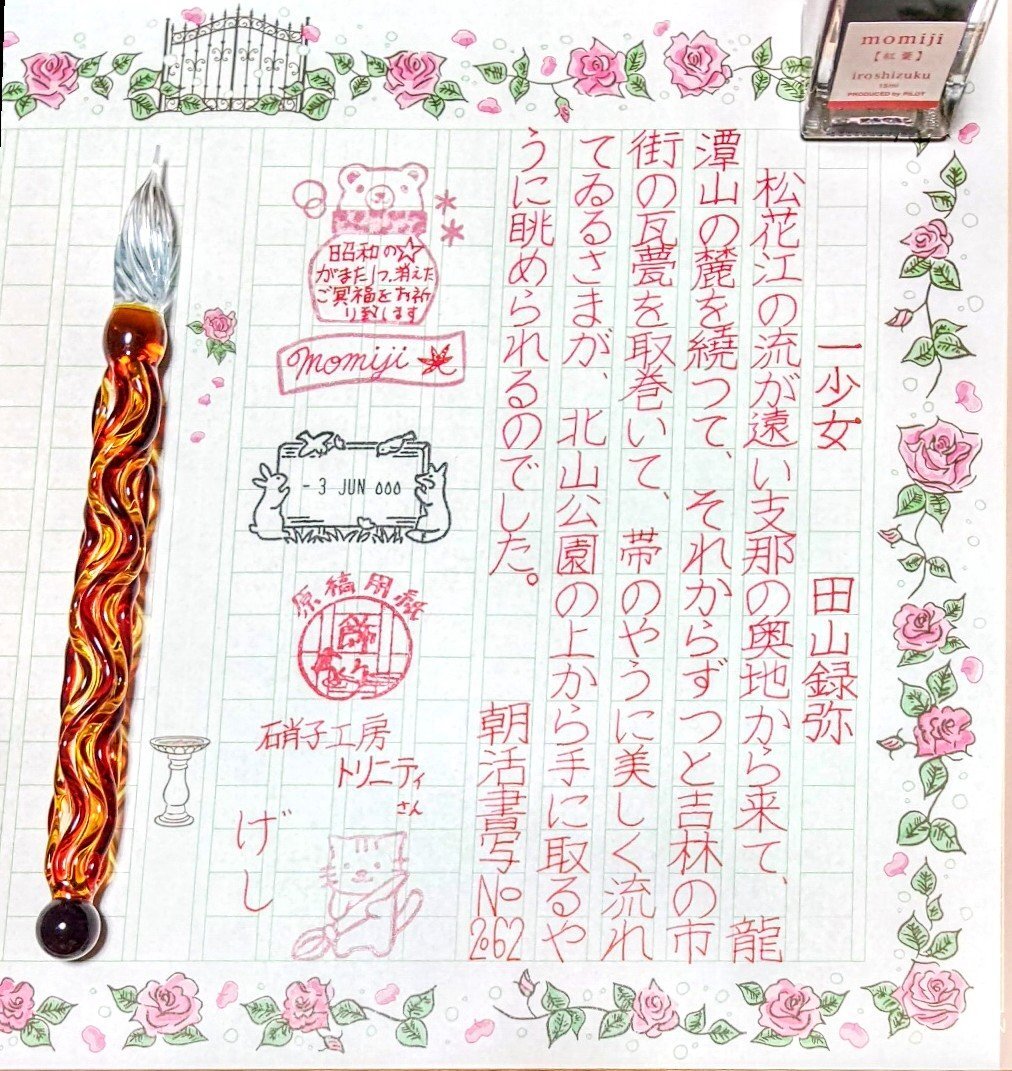 momiji
【紅葉】
iroshizuku
15ml
PRODUCED by PILOT
一少女　田山録弥
松花江の流が遠い支那の奥地から来て、龍
潭山の麓を繞つて、それからずつと吉林の市
街の瓦甍を取巻いて、帯のやうに美しく流れ
てゐるさまが、北山公園の上から手に取るや
うに眺められるのでした。
朝活書写No 2062
昭和の☆
がまた1つ、消えた
ご冥福をお祈
り致します
momiji
- 3 JUN 000
原稿用紙
飾
硝子工房
トリニティ
さん
げし